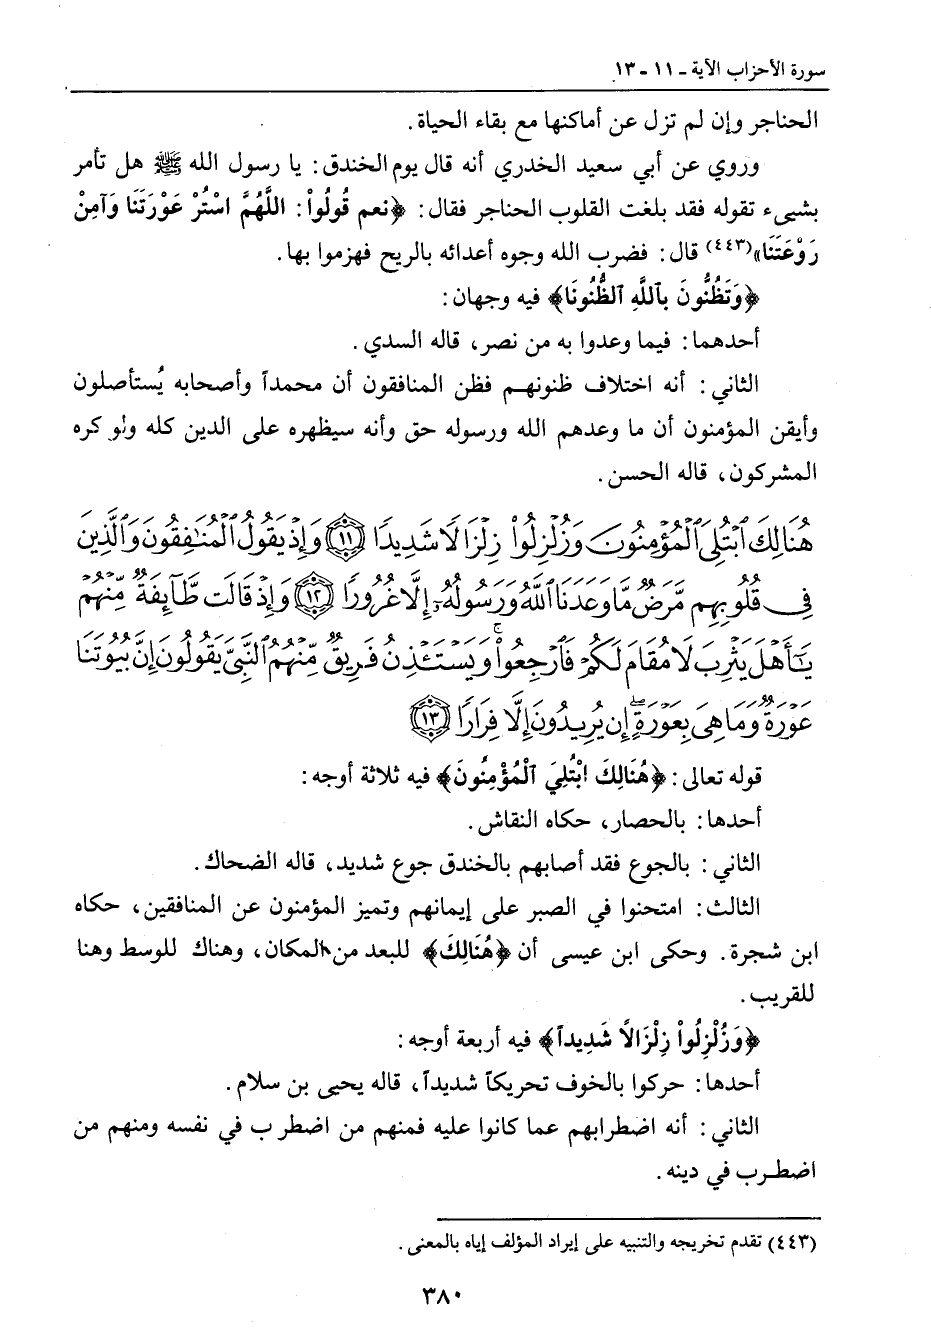 سورة الأحزاب الآية ـ ١١ ـ ١٣
الحناجر وإن لم تزل عن أماكنها مع بقاء الحياة.
وروي عن أبي سعيد الخدري أنه قال يوم الخندق: يا رسول الله ﷺ هل تأمر
بشيء تقوله فقد بلغت القلوب الحناجر فقال: ﴿نعم قُولُواْ: اللَّهُمَّ اسْتُرْ عَوْرَتَنَا وَآمِنْ
رَوْعَتَنَا»(٤٤٣) قال: فضرب الله وجوه أعدائه بالريح فهزموا بها.
﴿وَتَظُنُّونَ بِٱللَّهِ ٱلظُّنُونَا﴾ فيه وجهان:
أحدهما: فيما وعدوا به من نصر، قاله السدي.
الثاني: أنه اختلاف ظنونهم فظن المنافقون أن محمداً وأصحابه يُستأصلون
وأيقن المؤمنون أن ما وعدهم الله ورسوله حق وأنه سيظهره على الدين كله ولو كره
المشركون، قاله الحسن.
هُنَالِكَ ٱبْتُلِيَ ٱلْمُؤْمِنُونَ وَزُلْزِلُواْ زِلْزَالًا شَدِيدًا ١١ وَإِذْ يَقُولُ ٱلْمُنَٰفِقُونَ وَٱلَّذِينَ
فِي قُلُوبِهِم مَّرَضٌ مَّا وَعَدَنَا ٱللَّهُ وَرَسُولُهُۥٓ إِلَّا غُرُورًا ١٢ وَإِذْ قَالَت طَّآئِفَةٌ مِّنْهُمْ
يَٰٓأَهْلَ يَثْرِبَ لَا مُقَامَ لَكُمْ فَٱرْجِعُواْ وَيَسْتَـْٔذِنُ فَرِيقٌ مِّنْهُمُ ٱلنَّبِيَّ يَقُولُونَ إِنَّ بُيُوتَنَا
عَوْرَةٌ وَمَا هِيَ بِعَوْرَةٍ إِن يُرِيدُونَ إِلَّا فِرَارًا ١٣
قوله تعالى: ﴿هُنَالِكَ ابْتُلِيَ ٱلْمُؤْمِنُونَ﴾ فيه ثلاثة أوجه:
أحدها: بالحصار، حكاه النقاش.
الثاني: بالجوع فقد أصابهم بالخندق جوع شديد، قاله الضحاك.
الثالث: امتحنوا في الصبر على إيمانهم وتميز المؤمنون عن المنافقين، حكاه
ابن شجرة. وحكى ابن عيسى أن ﴿هُنَالِكَ﴾ للبعد من المكان، وهناك للوسط وهنا
للقريب.
﴿وَزُلْزِلُواْ زِلْزَالاً شَدِيداً﴾ فيه أربعة أوجه:
أحدها: حركوا بالخوف تحريكاً شديداً، قاله يحيى بن سلام.
الثاني: أنه اضطرابهم عما كانوا عليه فمنهم من اضطرب في نفسه ومنهم من
اضطرب في دينه.
(٤٤٣) تقدم تخريجه والتنبيه على إيراد المؤلف إياه بالمعنى.
٣٨٠